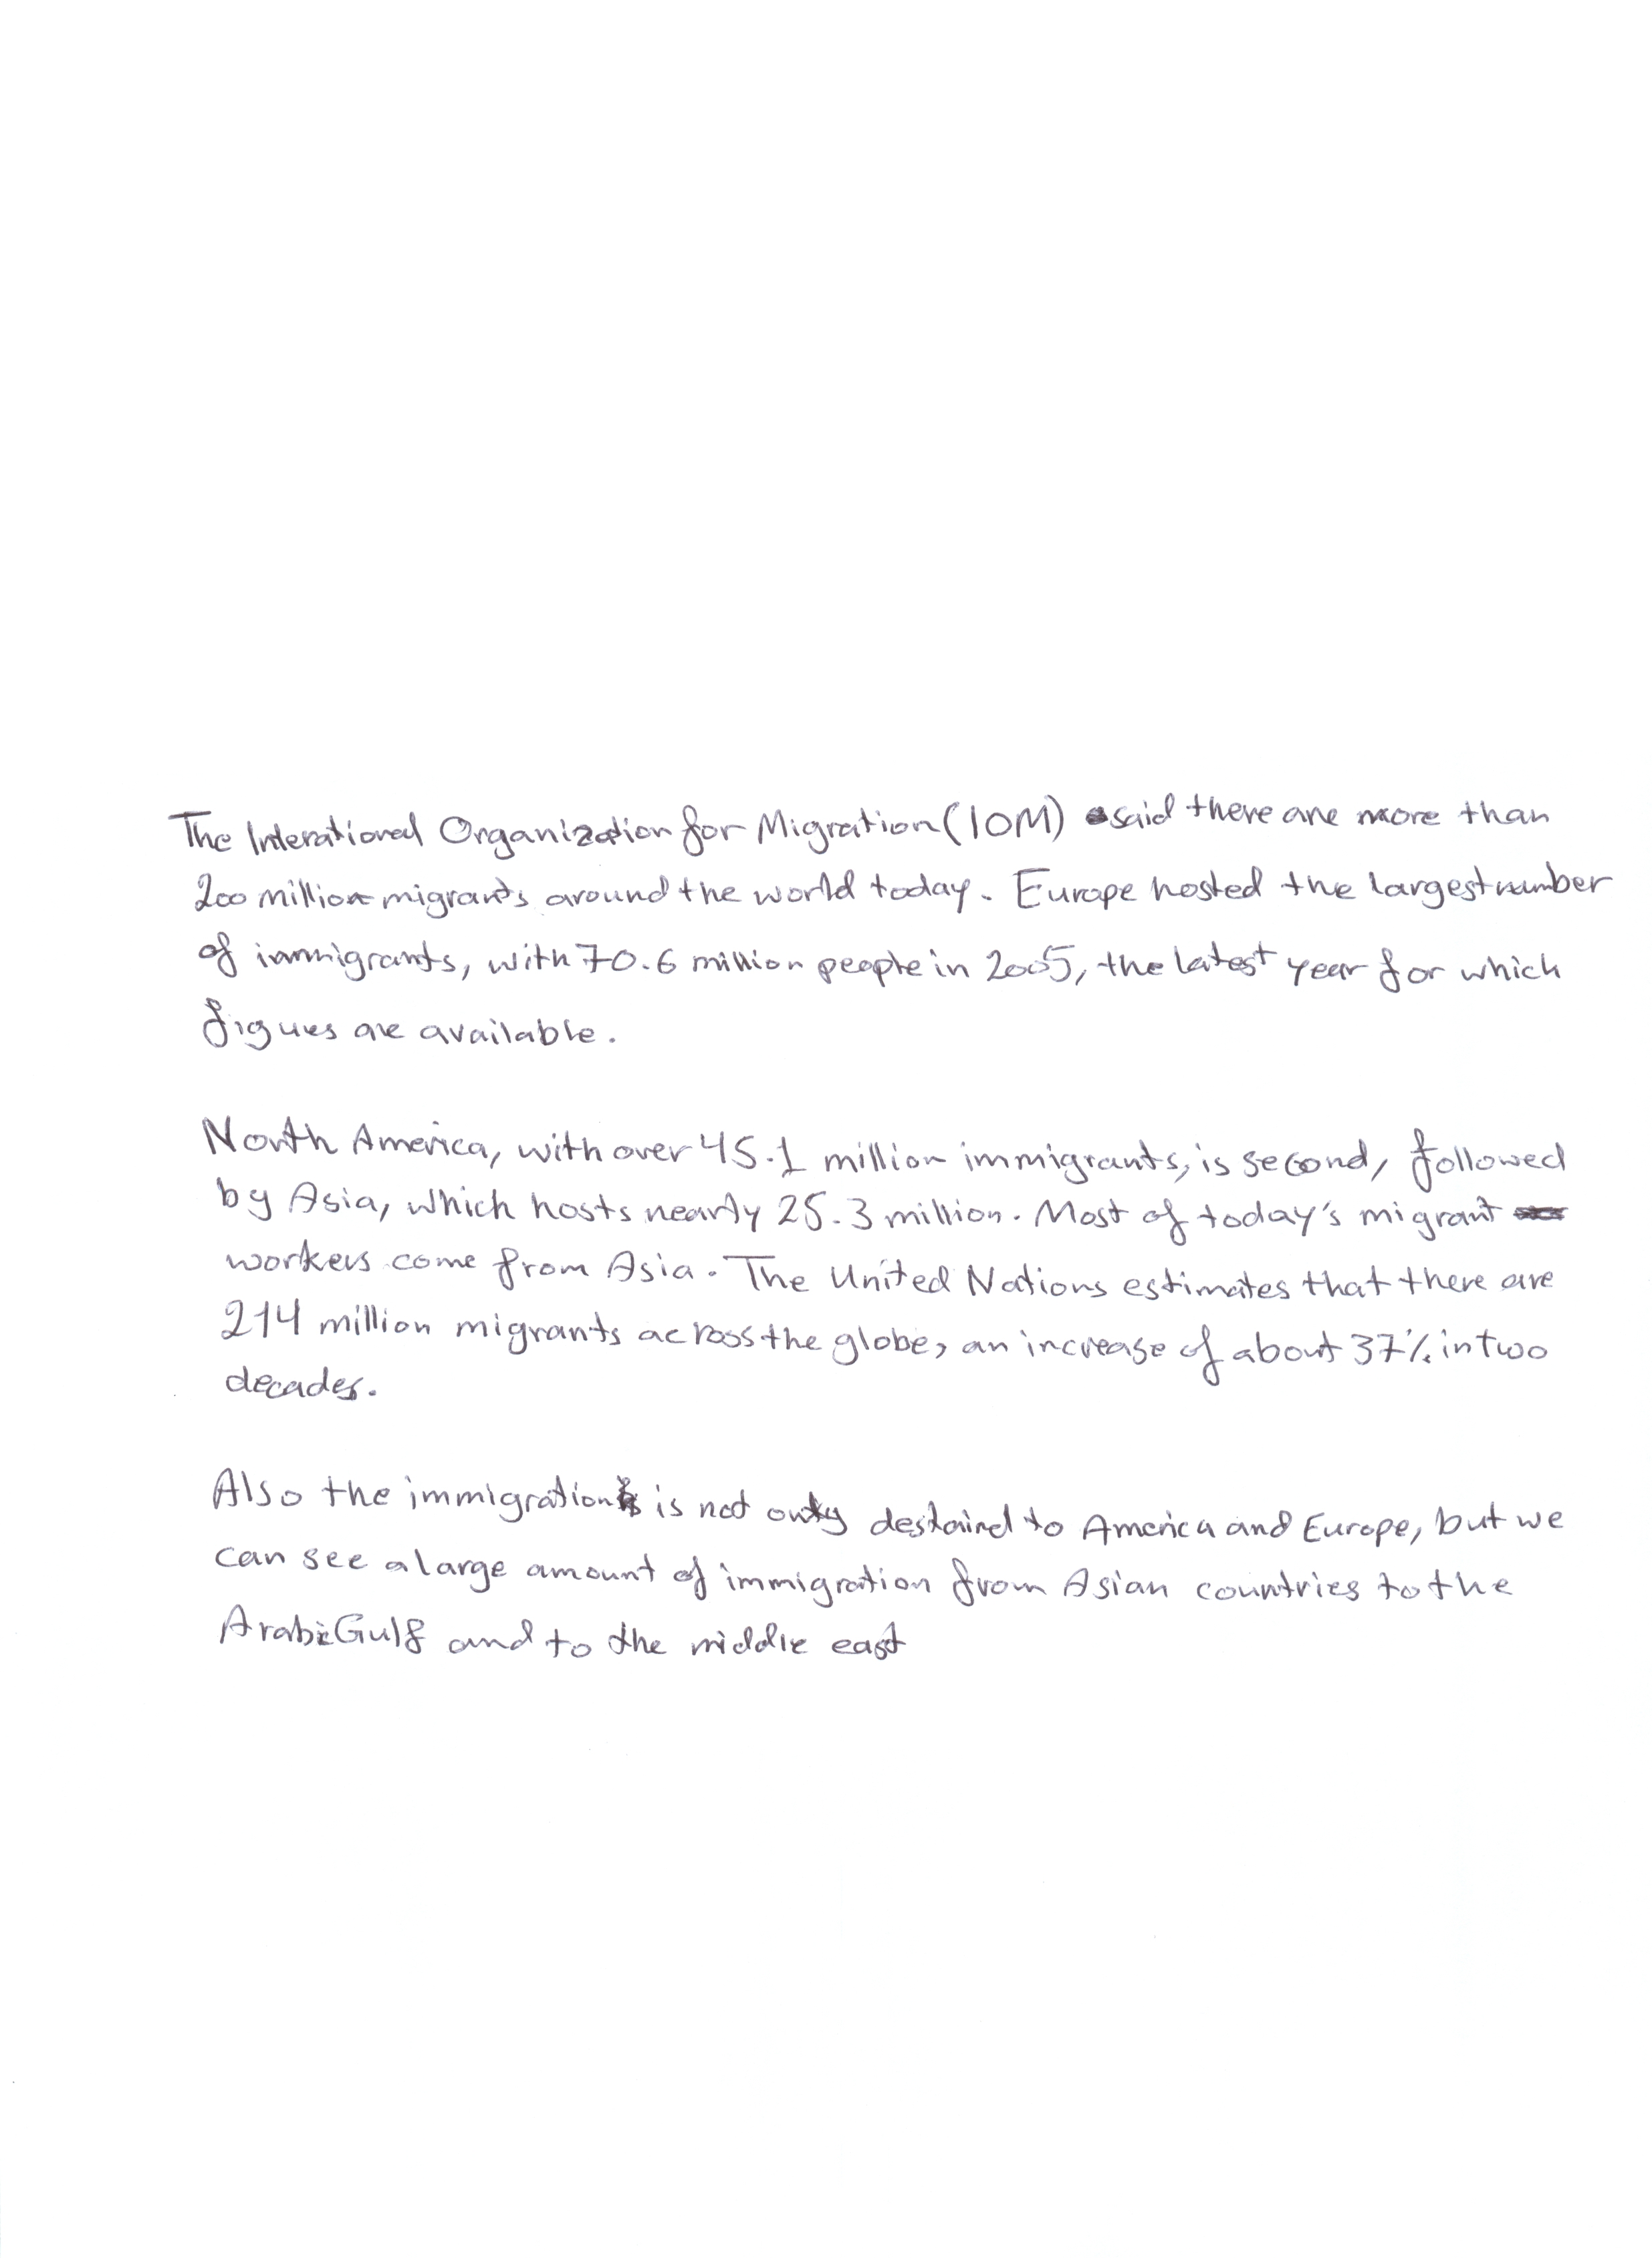 The Interational Organization for Migration (IOM) said there are more than
200 million migrants around the world today. Europe hosted the largest number
of immigrants, with 70.6 million people in 2005, the latest year for which
figues are available.
North America, with over 45.1 million immigrants, is second, followed
by Asia, which hosts nearly 25.3 million. Most of today's migrant
workers come from Asia. The United Nations estimates that there are
214 million migrants across the globe, an increase of about 37% in two
decades.
Also the immigration is not only destained to America and Europe, but we
can see a large amount of immigration from Asian countries to the
Arabic Gulf and to the middle east